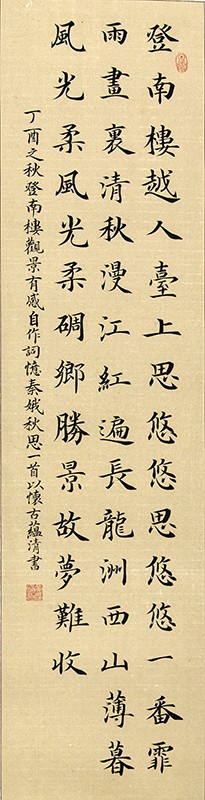 登南樓越人臺上思悠悠思悠悠一番霏
雨畫裏清秋漫江紅遍長龍洲西山薄暮
風光柔風光柔碉鄉勝景故夢難收
丁酉之秋登南樓觀景有感自作詞憶秦娥秋思一首以懷古蘊清書